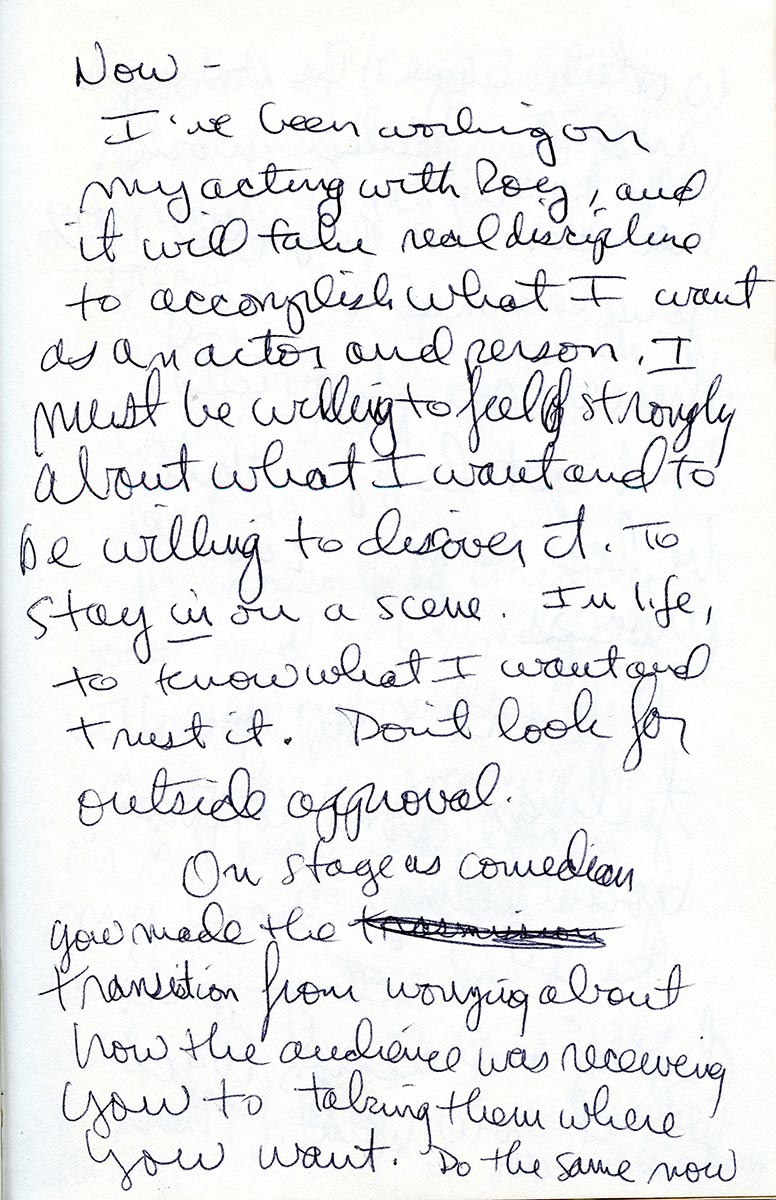 Now -
I've been working on
my acting with Roy, and
it will take real discipline
to accomplish what I want
as an actor and person. I
must be willing to feel strongly
about what I want and to
be willing to discover it. To
stay in on a scene. In life,
to know what I want and
trust it. Don't look for
outside approval.
On stage as comedian
you made the
transition from worrying about
how the audience was receiving
you to taking them where
you want. Do the same now